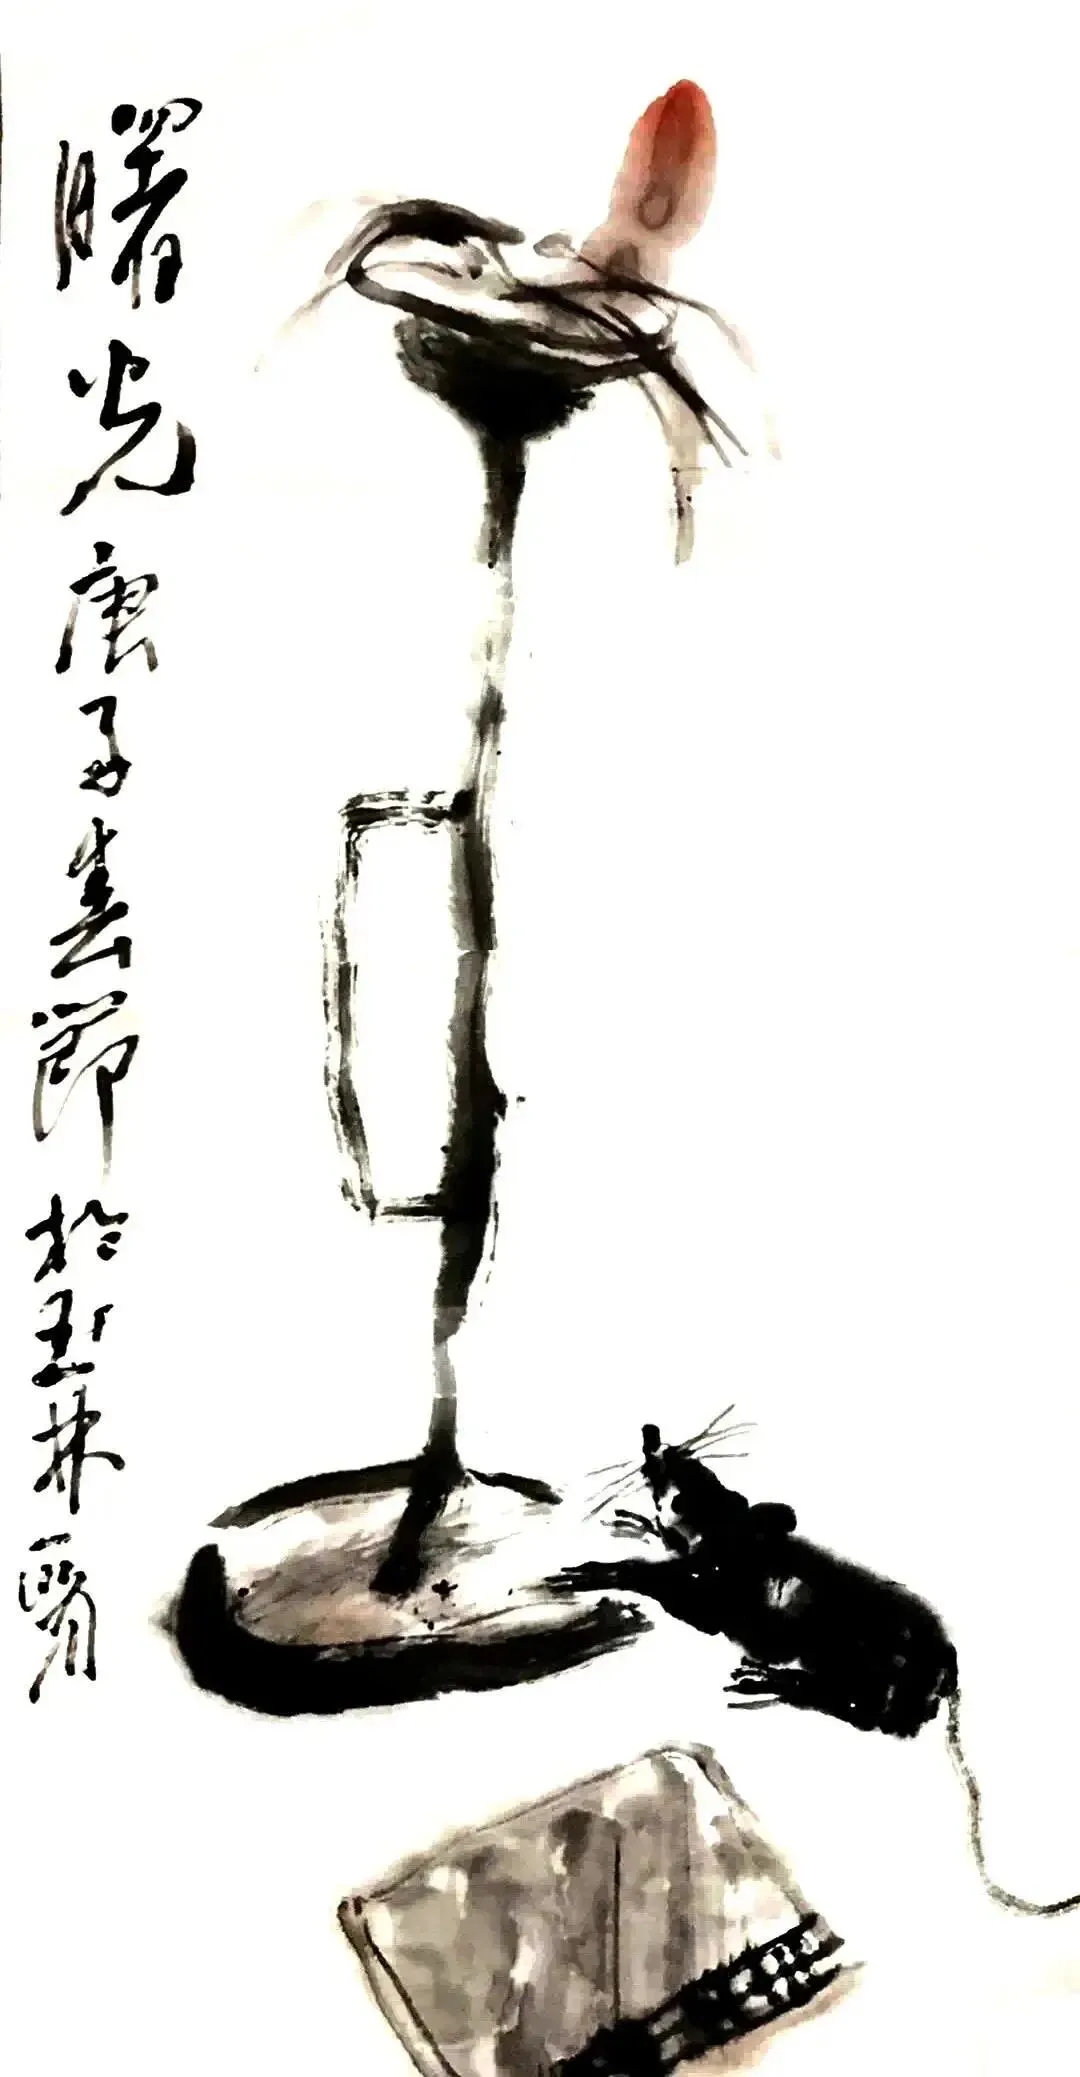 曙光庚子春節於玉林